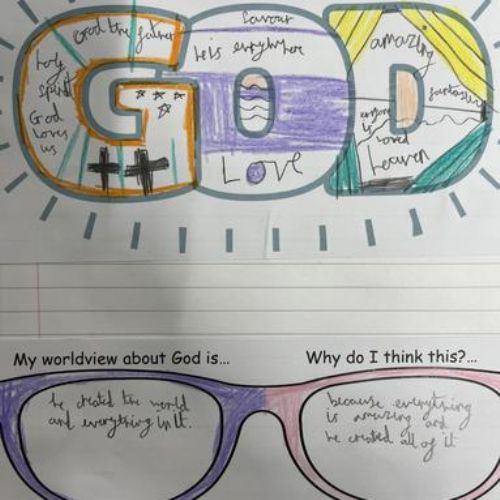 GOD
God the father
holy
spirit
God
loves
us
favour
He is everywhere
Love
amazing
fantastic
everyone
is
loved
heaven
My worldview about God is...
Why do I think this?...
he created the world
and everything in it.
because everything
is amazing and
he created all of it